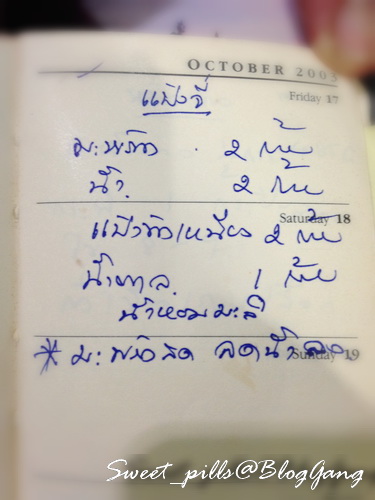 OCTOBER 2003
Friday 17
แป้งจี่
มะพร้าว 2 ถ้วย
น้ำ 2 ถ้วย
Saturday 18
แป้งข้าวเหนียว 2 ถ้วย
น้ำตาล 1 ถ้วย
น้ำหอมมะลิ
Sunday 19
* มะพร้าวสด ลดน้ำลง
Sweet_pills@BlogGang